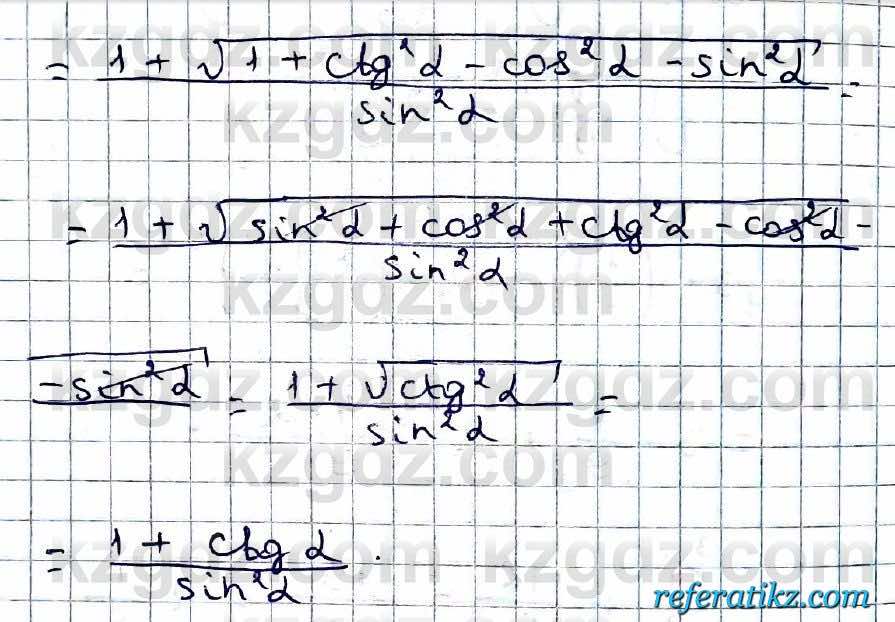 = (1 + √(1 + ctg²α - cos²α - sin²α)) / sin²α =
= (1 + √(sin²α + cos²α + ctg²α - cos²α - / sin²α
-sin²α) = (1 + √(ctg²α)) / sin²α =
= (1 + ctg α) / sin²α .
referatikz.com
kzgdz.com